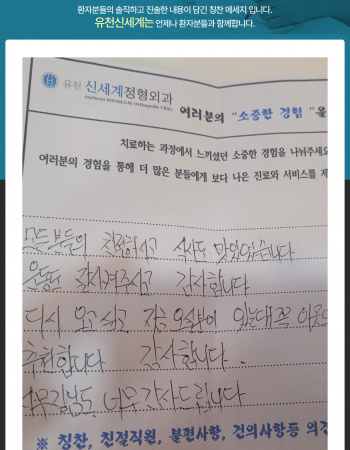 환자분들의 솔직하고 진솔한 내용이 담긴 칭찬 메세지 입니다.
유천신세계는 언제나 환자분들과 함께합니다.
유천 신세계정형외과
여러분의 "소중한 경험"을
치료하는 과정에서 느끼셨던 소중한 경험을 나눠주세요
여러분의 경험을 통해 더 많은 분들에게 보다 나은 진료와 서비스를 제
모든분들의 친절하시고 식사도 맛있었습니다
운동도 감사합니다
다시 오고싶고
추천합니다 감사합니다.
너무 감사드립니다
※ 칭찬, 친절직원, 불편사항, 건의사항등 의견